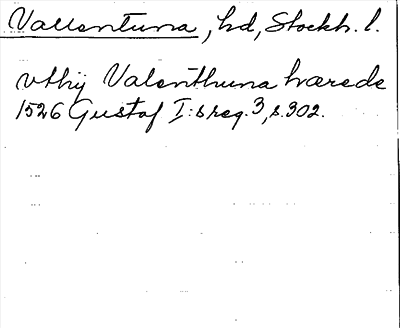 Vallentuna, hd, Stockh. l.
vthij Valenthuna hærede
1526 Gustaf I:s reg. 3, s. 302.